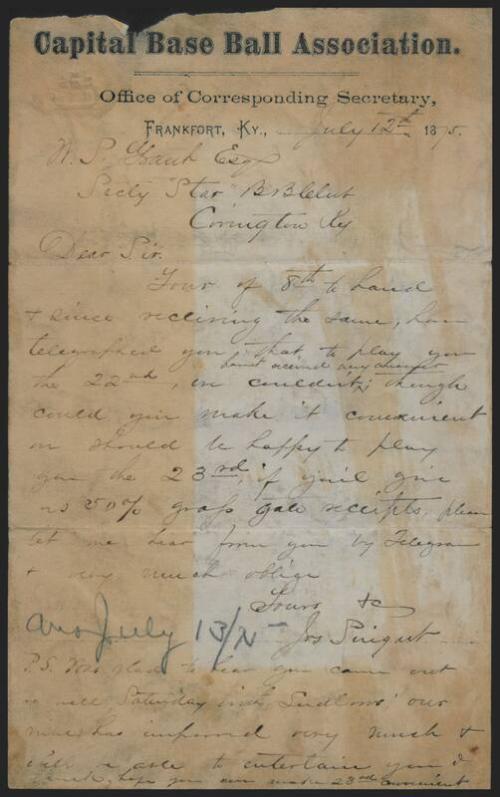 Capital Base Ball Association.
Office of Corresponding Secretary,
FRANKFORT, KY., July 12th 1875.
W. P. Esq
Secty Star B B Club
Covington Ky
Dear Sir.
Yours of 8th to hand
& since receiving the same, have
telegraphed you that to play you
havnt received any answer
the 22nd, we couldnt; though
could you make it convenient
we should be happy to play
you the 23rd, if you'l give
us 50% gross gate receipts, please
let me hear from you by Telegram
& very much oblige
Yours &c
Ans July 13/75
Jos
P.S. Was glad to hear you came out
so well Saturday with Ludlows' our
nine has improved very much &
will be able to entertain you
hope you can make 23rd convenient